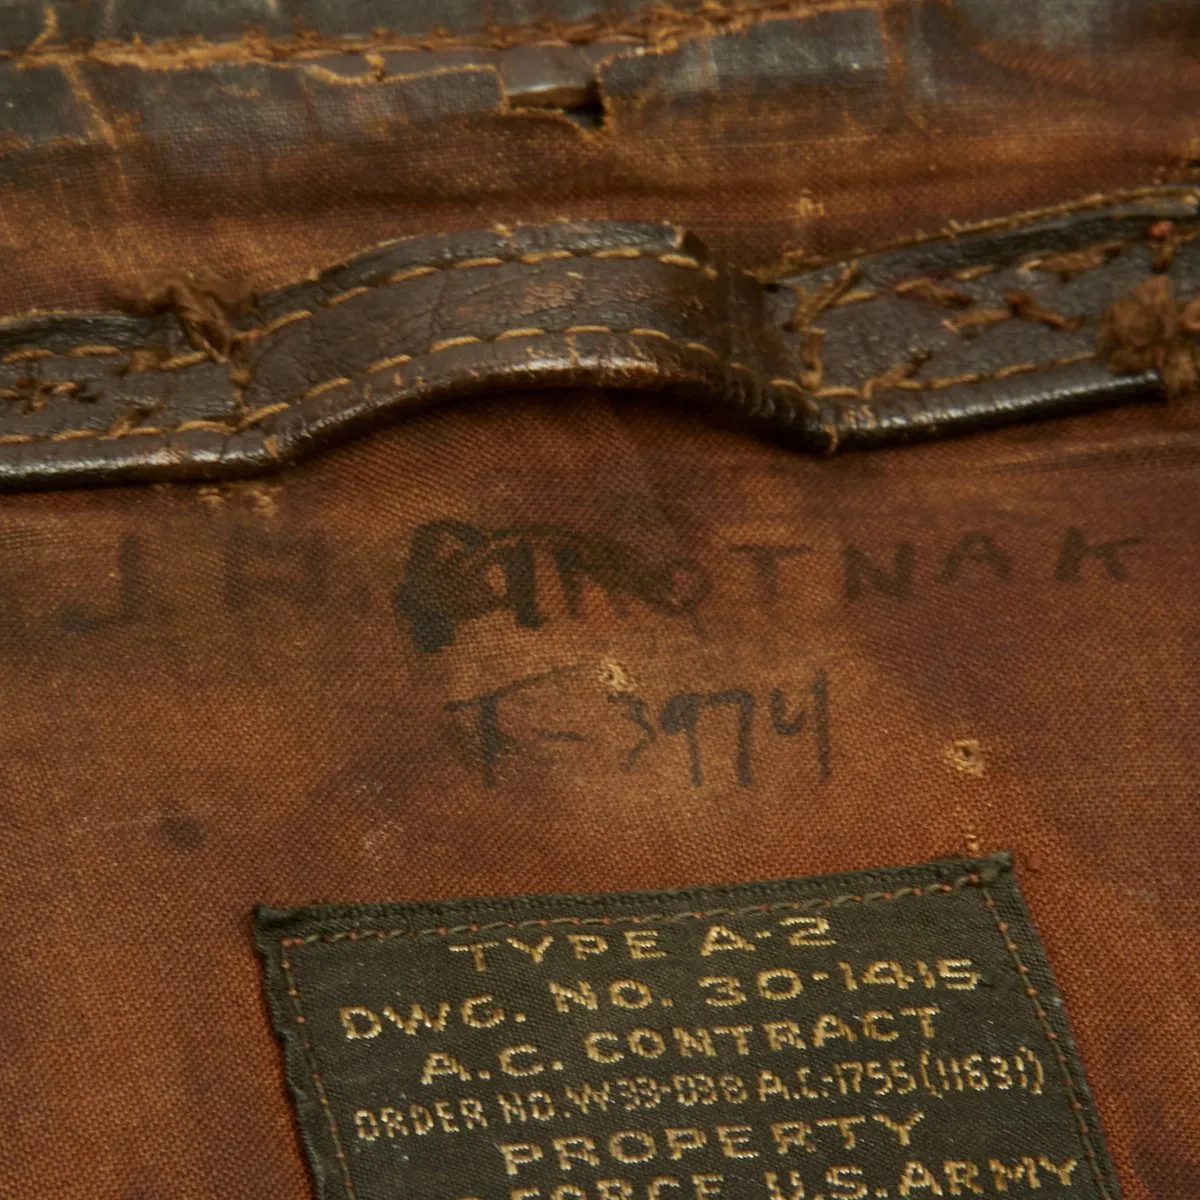 J. H.
T-3974
TYPE A-2
DWG. NO. 30-1415
A.C. CONTRACT
ORDER NO. W-33-038 A.C.-1755(11631)
PROPERTY
FORCE U.S. ARMY